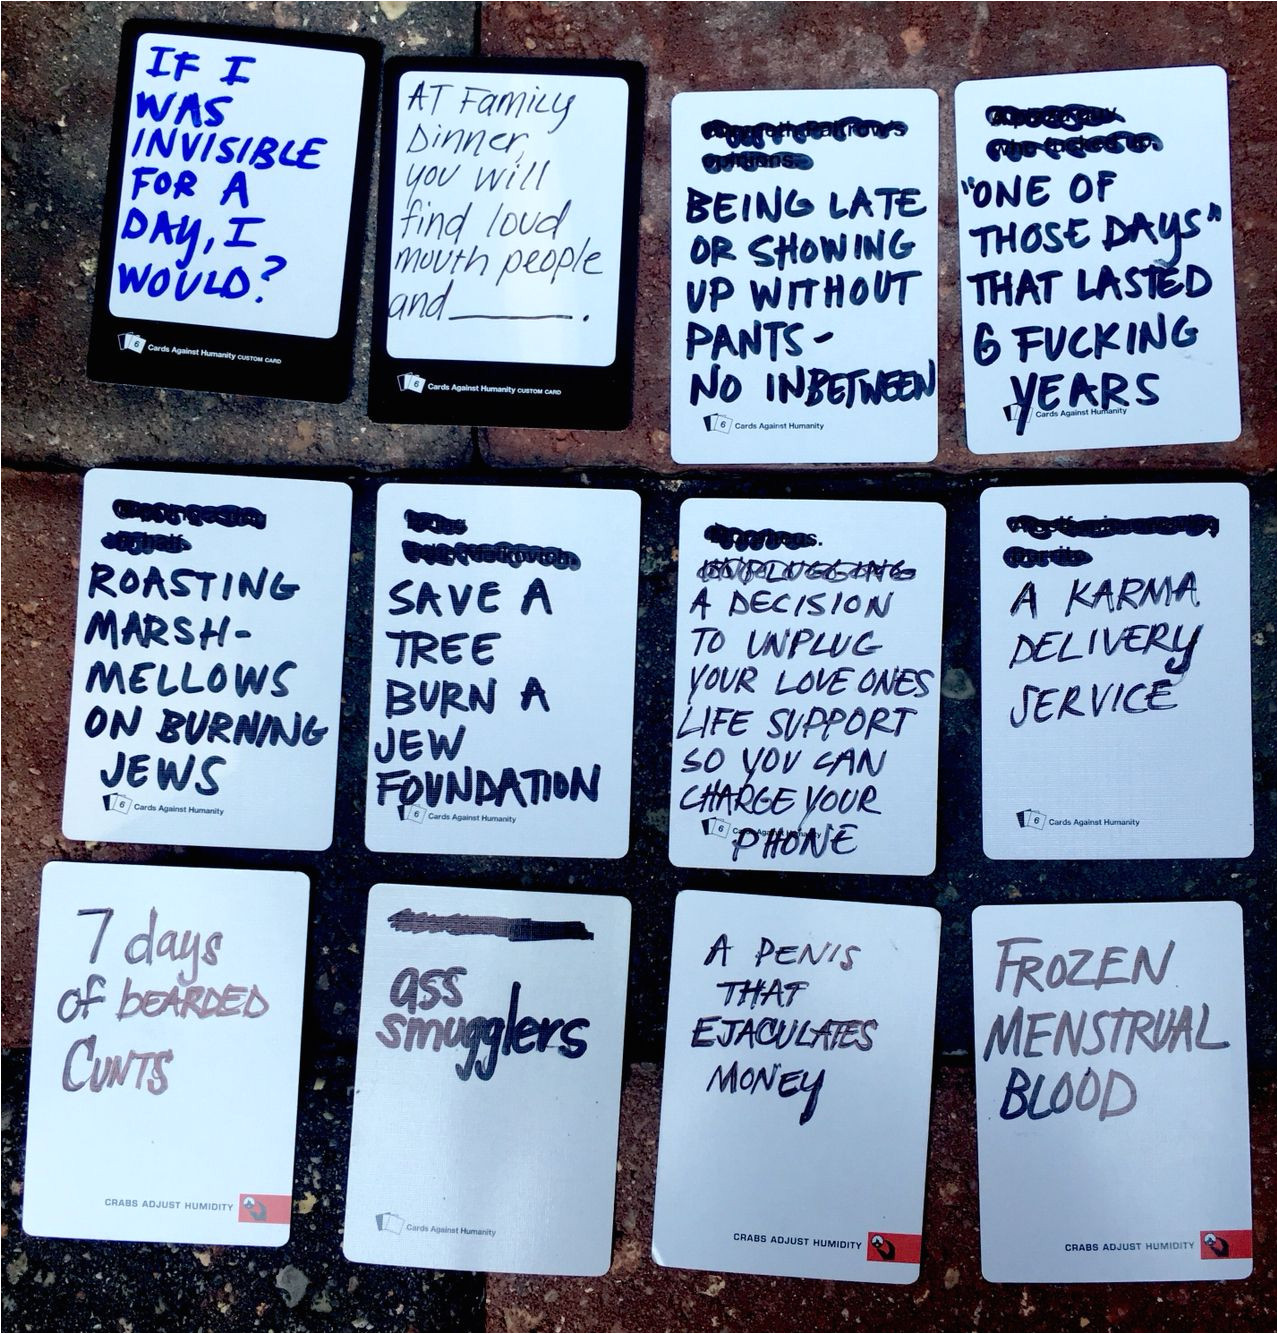 IF I
WAS
INVISIBLE
FOR A
DAY, I
WOULD?
6 Cards Against Humanity CUSTOM CARD
AT Family
Dinner,
you will
find loud
mouth people
and______.
6 Cards Against Humanity CUSTOM CARD
BEING LATE
OR SHOWING
UP WITHOUT
PANTS -
NO INBETWEEN
6 Cards Against Humanity
"ONE OF
THOSE DAYS"
THAT LASTED
6 FUCKING
YEARS
6 Cards Against Humanity
ROASTING
MARSH-
MELLOWS
ON BURNING
JEWS
6 Cards Against Humanity
SAVE A
TREE
BURN A
JEW
FOUNDATION
6 Cards Against Humanity
UNPLUGGING
A DECISION
TO UNPLUG
YOUR LOVE ONES
LIFE SUPPORT
SO YOU CAN
CHARGE YOUR
PHONE
6 Cards Against Humanity
A KARMA
DELIVERY
SERVICE
6 Cards Against Humanity
7 days
of BEARDED
CUNTS
CRABS ADJUST HUMIDITY
ass
smugglers
Cards Against Humanity
A PENIS
THAT
EJACULATES
MONEY
CRABS ADJUST HUMIDITY
FROZEN
MENSTRUAL
BLOOD
CRABS ADJUST HUMIDITY